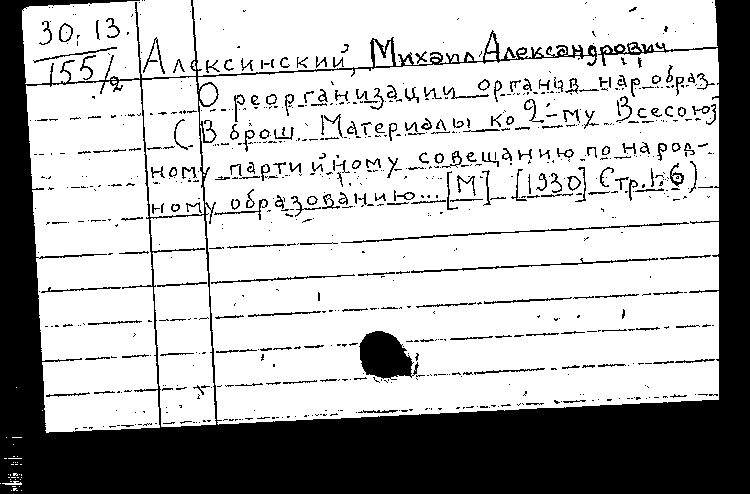 30.13.
155/2
Алексинский, Михаил Александрович
О реорганизации органов нар образ
(В брош. Материалы ко 2-му Всесоюз
ному партийному совещанию по народ-
ному образованию... [М] [1930] Стр.1-6)